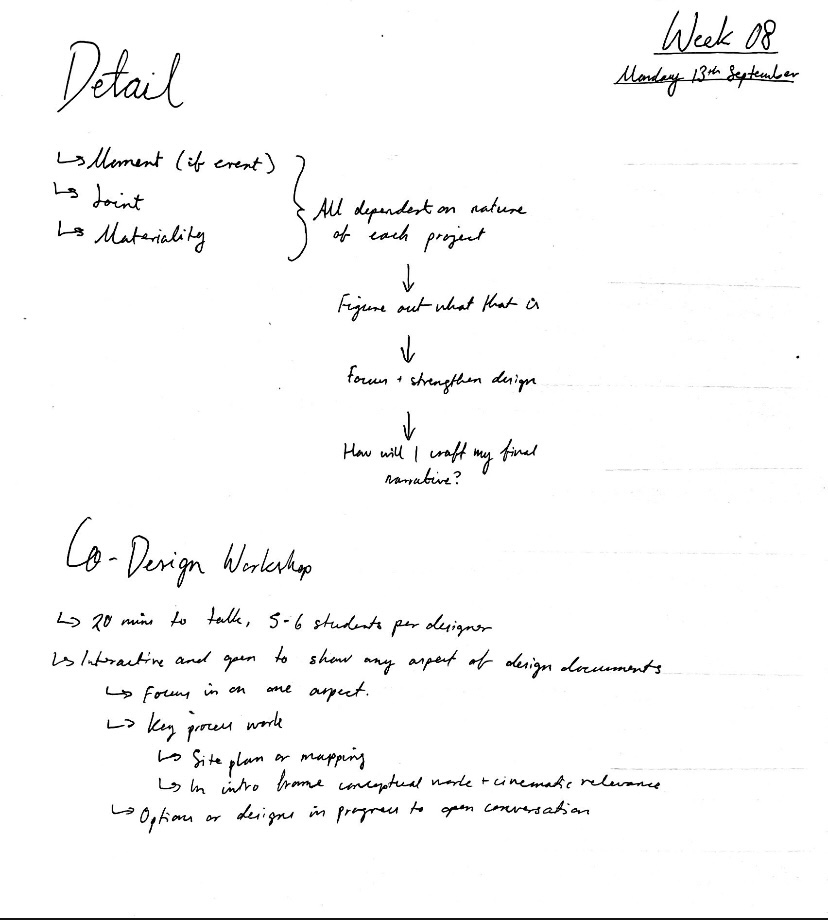 Week 08
Monday 13th September
Detail
↳ Moment (if event)
↳ Joint
↳ Materiality
All dependent on nature
of each project
↓
Figure out what that is
↓
Focus + strengthen design
↓
How will I craft my final
narrative?
Co-Design Workshop
↳ 20 mins to talk, 5-6 students per designer
↳ Interactive and open to show any aspect of design documents
↳ Focus in on one aspect.
↳ Key process work
↳ Site plan or mapping
↳ In intro frame conceptual work + cinematic relevance
↳ Options or designs in progress to open conversation